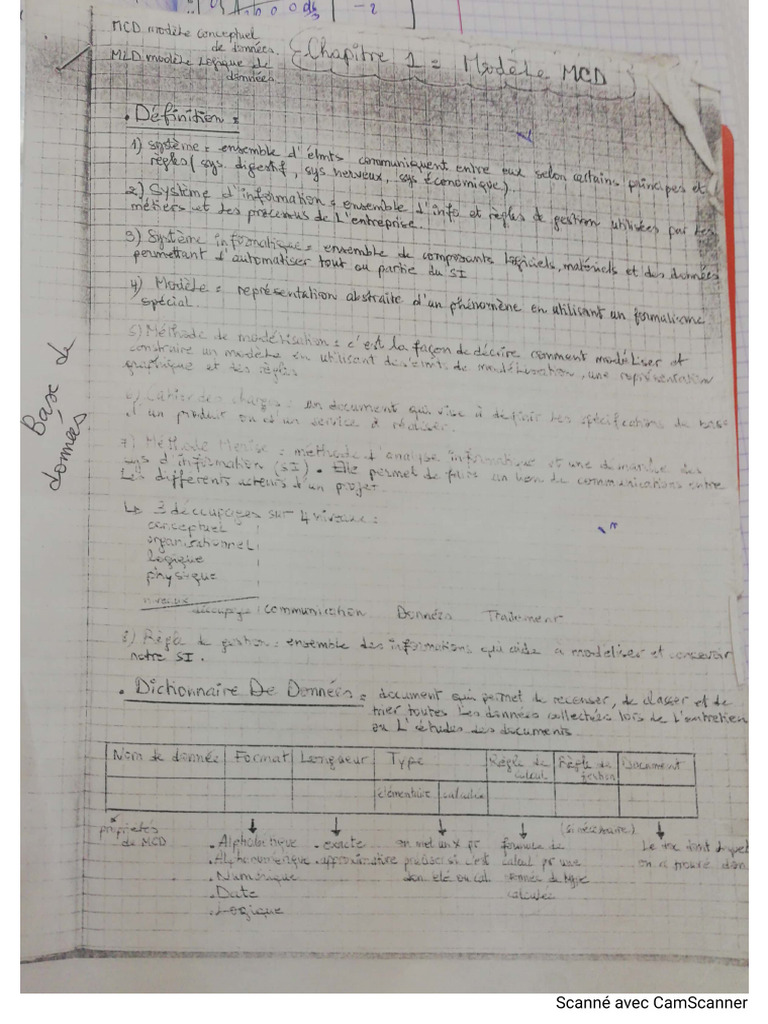 MCD modèle conceptuel
de données.
MLD modèle Logique de
données.
Chapitre 1 = Modèle MCD
. Définition =
1) système = ensemble d'élmts communiquent entre eux selon certains principes et
règles (sys. digestif, sys nerveux, sys économique).
2) Système d'information = ensemble d'info et règles de gestion utilisées par les
métiers et des processus de L'entreprise.
3) Système informatique = ensemble de composants logiciels, matériels et des données
permettant d'automatiser tout ou partie du SI
4) Modèle = représentation abstraite d'un phénomène en utilisant un formalisme
spécial.
5) Méthode de modélisation = c'est la façon de décrire comment modéliser et
construire un modèle en utilisant des élmts de modélisation, une représentation
graphique et des règles
6) Cahier des charges = un document qui vise à définir les spécifications de base
d'un produit ou d'un service à réaliser.
7) Méthode Merise = méthode d'analyse informatique et une démarche des
sys d'information (SI). Elle permet de faire un lien de communications entre
Les différents acteurs d'un projet
↳ 3 découpages sur 4 niveaux :
conceptuel
organisationnel
logique
physique
niveaux
découpage communication Données Traitement
8) Règle de gestion = ensemble des informations qui aide a modéliser et concevoir
notre SI.
. Dictionnaire De Données = document qui permet de recenser, de classer et de
trier toutes les données collectées lors de L'entretien
ou L'études des documents
Nom de donnée Format Longueur Type Règle de calcul Règle de gestion Document
élémentaire calculée
propriétés de MCD
. Alphabétique . exacte on met un x pr formule de (si nécessaire) Le doc dont
. Alphanumérique . approximative préciser si c'est calcul pr une on a trouvé
. Numérique don elé ou cal donnée de type
. Date calculée
. Logique
Base de
données
Scanné avec CamScanner